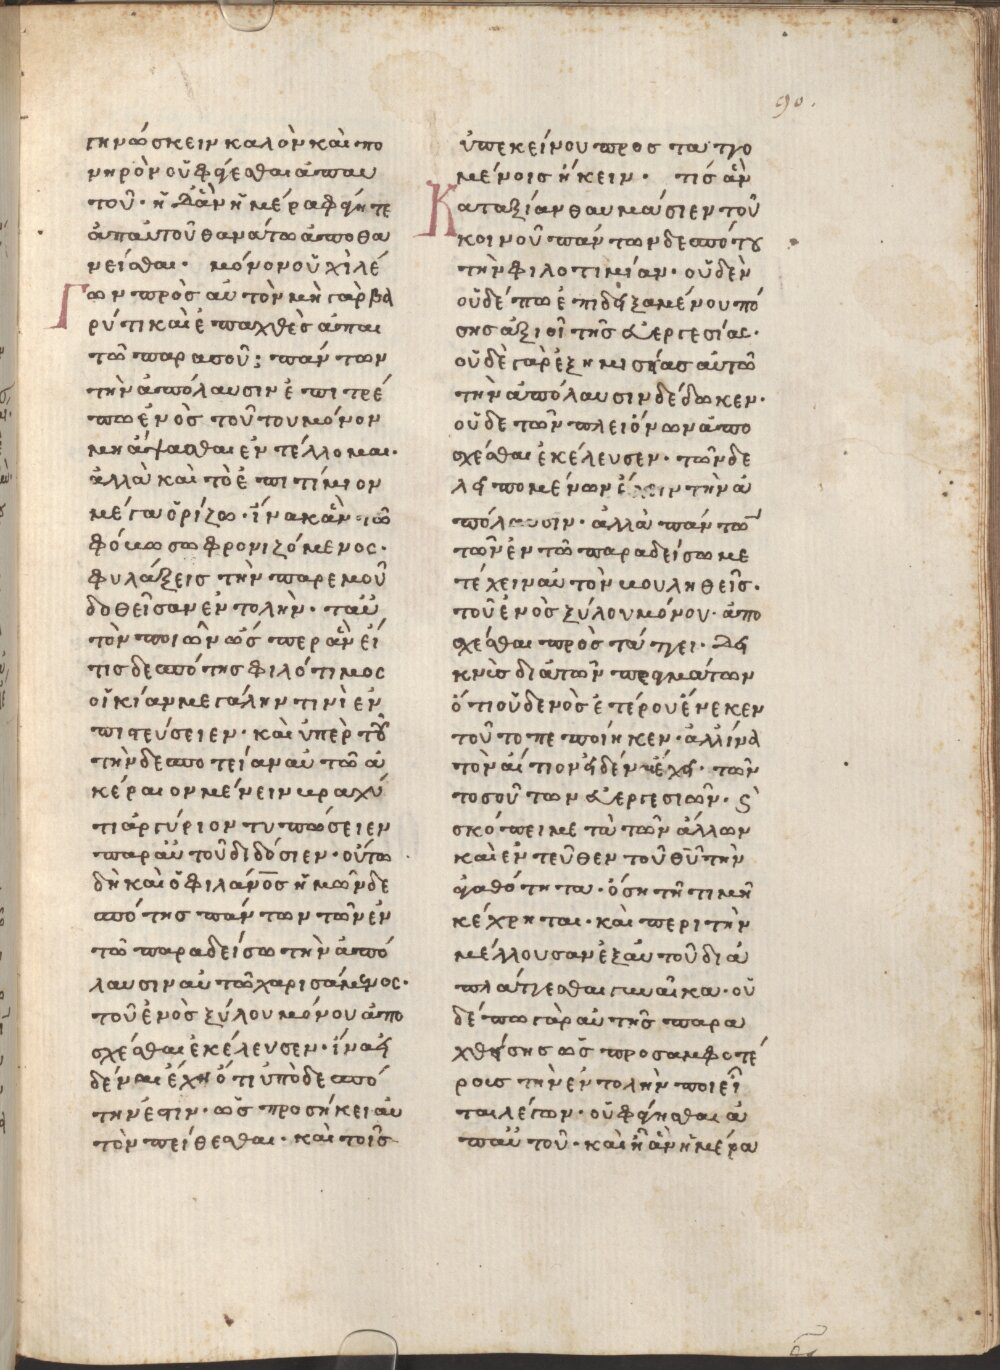 90.
γινώσκειν καλὸν καὶ πο
νηρὸν οὐ φάγεσθαι ἀπ' αυ
τοῦ· ἧ δ' ἂν ἡμέρα φάγητε
ἀπ' αὐτοῦ θανάτω ἀποθα
νεῖσθαι· μόνον οὐχὶ λέ
Γων πρὸς αὐτὸν μὴ γὰρ βα
ρύ τι καὶ ἐπαχθὲς ἀπαι
τῶ παρα σοῦ; πάντων
τὴν ἀπόλαυσιν ἐπιτρέ
πω ἑνὸς τούτου μόνον
μὴ ἅψασθαι ἐντέλλομαι·
ἀλλὰ καὶ τὸ ἐπιτίμιον
μέγα ὁρίζω· ἵνα κἂν τῶ
φόβω σωφρονιζόμενος·
φυλάξεις τὴν παρ' εμοῦ
δοθεῖσαν ἐντολὴν· ταὐ
τὸν ποιῶν ὥσπερ ἂν εἴ
τις δεσπότης φιλότιμος
οἰκίαν μεγάλην τινὶ ἐν
πιστεύσειεν· καὶ ὑπὲρ τοῦ
τὴν δεσποτείαν αὐτῶ ἀ
κέραιον μένειν βραχύ
τι ἀργύριον τυπώσειεν
παρ' αὐτοῦ διδόσιεν· οὕτω
δὴ καὶ ὁ φιλάνος ἡμῶν δε
σπότης πάντων τῶν ἐν
τῶ παραδείσω τὴν ἀπό
λαυσιν αὐτῶ χαρισάμενος·
τοῦ ἑνὸς ξύλου μόνου ἀπο
σχέσθαι ἐκέλευσεν· ἵνα εἰ
δέναι έχη ὅτι ὑπὸ δεσπό
την ἐστιν· ὡ προσήκει αυ
τὸν πείθεσθαι· καὶ τοῖς
ὑπ' εκείνου προσταττο
μένοις ἥκειν· τίς ἂν
Κατ' αξίαν θαυμάσιεν τοῦ
κοινοῦ πάντων δεσπότου
τὴν φιλοτιμίαν· οὐδὲν
οὐδέπω ἐπιδειξαμένου πό
σης ἀξιοῖ τῆς εὐεργεσίας·
οὐδὲ γὰρ ἐξ ημισείας αὐτῶ
τὴν ἀπόλαυσιν δέδωκεν·
οὐδε τῶν πλειόνων ἀπο
σχέσθαι ἐκέλευσεν· τῶν δε
λειπομένων ἔχειν τὴν ἀ
πόλαυσιν· ἀλλὰ πάντων
τῶν ἐν τῶ παραδείσω με
τέχειν αὐτὸν βουληθεὶς·
τοῦ ἑνὸς ξύλου μόνου· ἀπο
σχέσθαι προστάττει· δει
κνὺς διὰ τῶν πραγμάτων
ὅτι οὐδενὸς ἑτέρου ἕνεκεν
τοῦτο πεποίηκεν· ἀλλ' ίνα
τὸν αἴτιον εἰδέναι ἔχει· τῶν
τοσούτων εὐεργεσιῶν· ϛ
σκόπει με τὰ τῶν ἄλλων
καὶ ἐντεῦθεν τοῦ θυ τὴν
ἀγαθότητα· ὅση τῆ τιμῆ
κέχρηται· καὶ περι τὴν
μέλλουσαν ἐξ αὐτοῦ δια
πλάττεσθαι γυναῖκα· οὐ
δέπω γὰρ αὐτῆς παρα
χθείσης ὡς προς αμφοτέ
ρους τὴν ἐντολὴν ποιεῖ
ται λέγων· οὐ φάγησθαι ἀ
π' αὐτοῦ· καὶ ἧ ἂν ἡμέρα